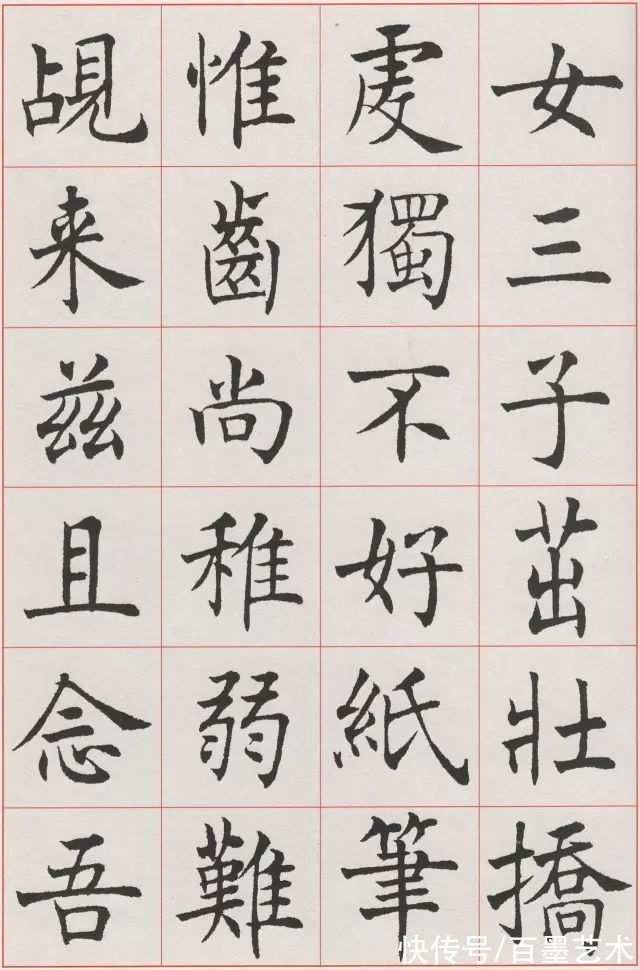 女三子茁壯撟
處獨不好紙筆
惟齒尚稚弱難
覘来兹且念吾
快传号/百墨艺术